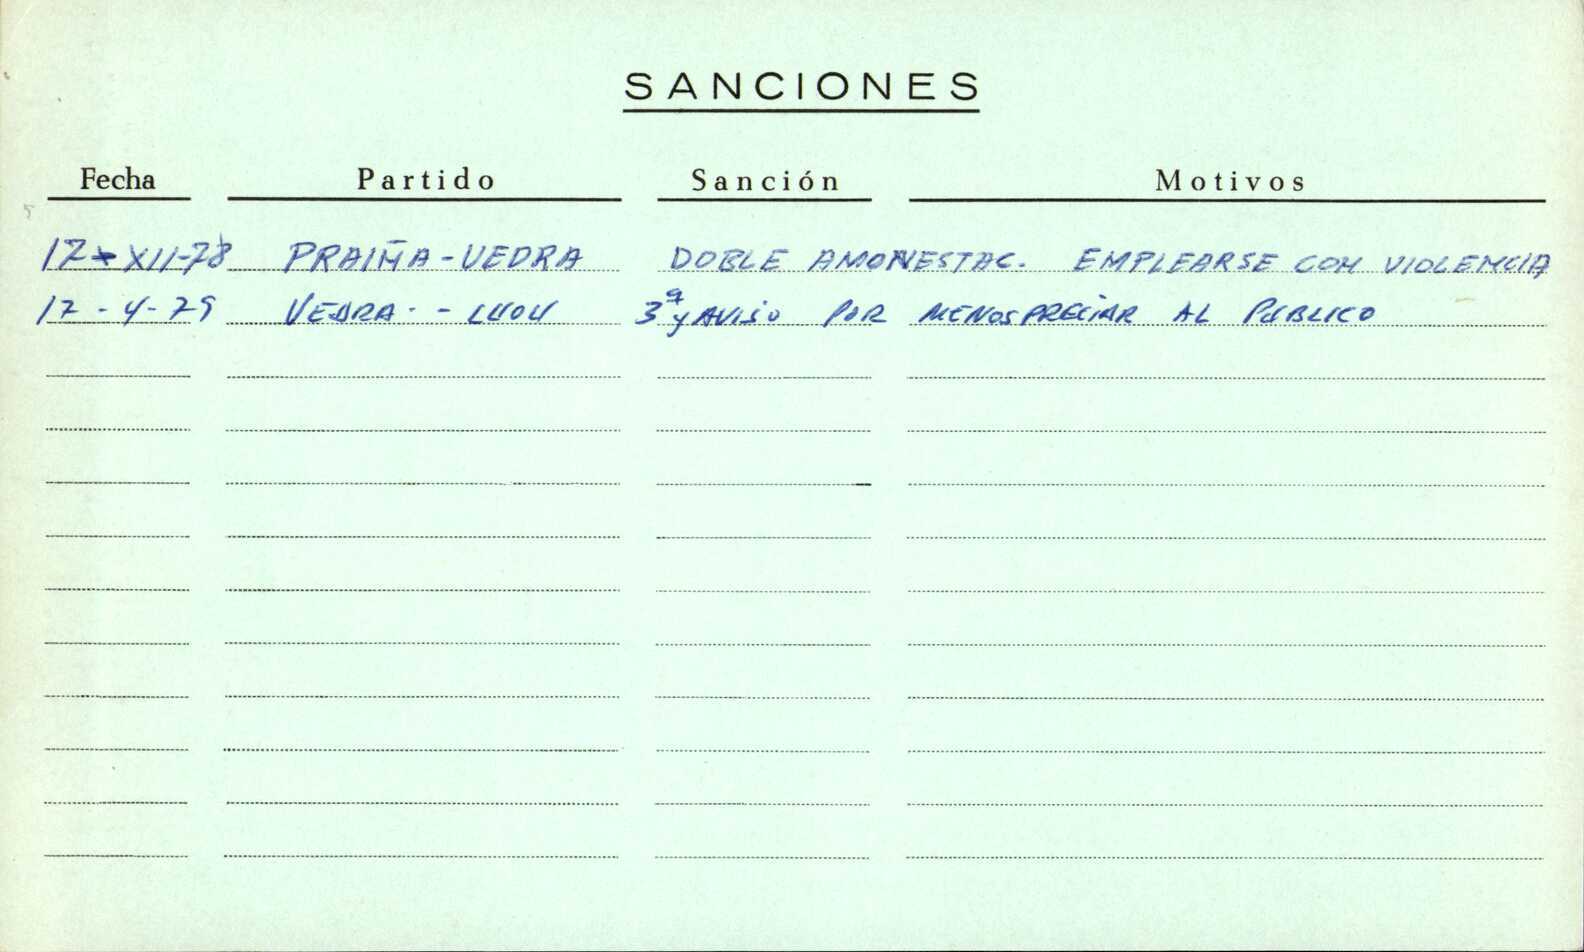 SANCIONES
Fecha Partido Sanción Motivos
17-XII-78 PRAIÑA-VEDRA DOBLE AMONESTAC. EMPLEARSE CON VIOLENCIA
17-4-79 VEDRA - LUOU 3ª y AVISO POR MENOSPRECIAR AL PUBLICO